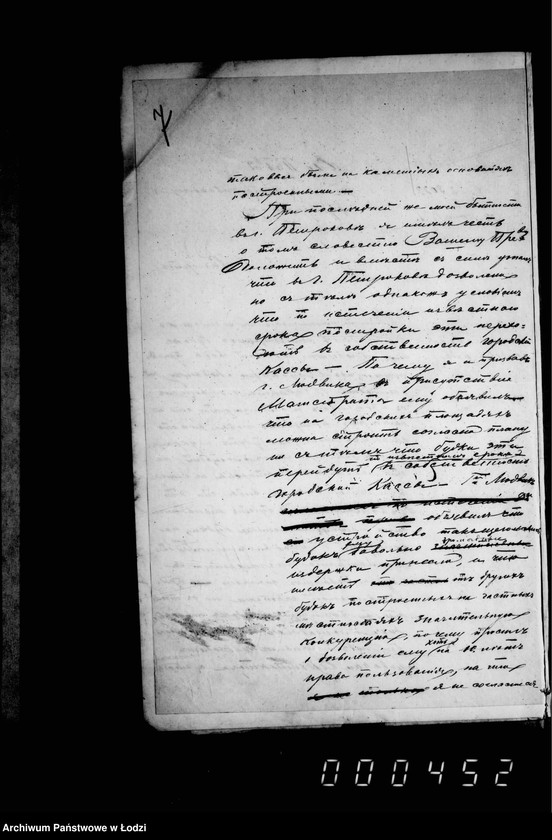 7
таковыя были на каменныхъ основаніяхъ
построенными. —
При послѣдней же моей бытности
въ г. Петроковѣ я имѣлъ честь
о томъ словесно Вашему Прев.
доложить и вмѣстѣ съ симъ узналъ
что въ г. Петроковѣ дозволено
но съ тѣмъ однакожъ условіемъ
что по истеченіи извѣстнаго
срока постройки эти перехо-
дятъ въ собственность городской
Кассы. — Почему я и призвавъ
г. Людвика въ присутствіе
Магистрата ему объявилъ
что на городскихъ площадяхъ
можно строить согласно плану
но съ тѣмъ что будки эти
по извѣстномъ срокѣ
перейдутъ въ собственность
городской Кассы. — Г. Людвикъ
объявилъ что
устройство такъ
будокъ ему довольно
издержки принесло, и что
имѣетъ отъ другихъ
будокъ построенныхъ на частныхъ
значительную
конкуренцію, почему просилъ
о дозволеніи ему хотя на лѣтъ
права пользованія, на что
я не согласился
000452
Archiwum Państwowe w Łodzi